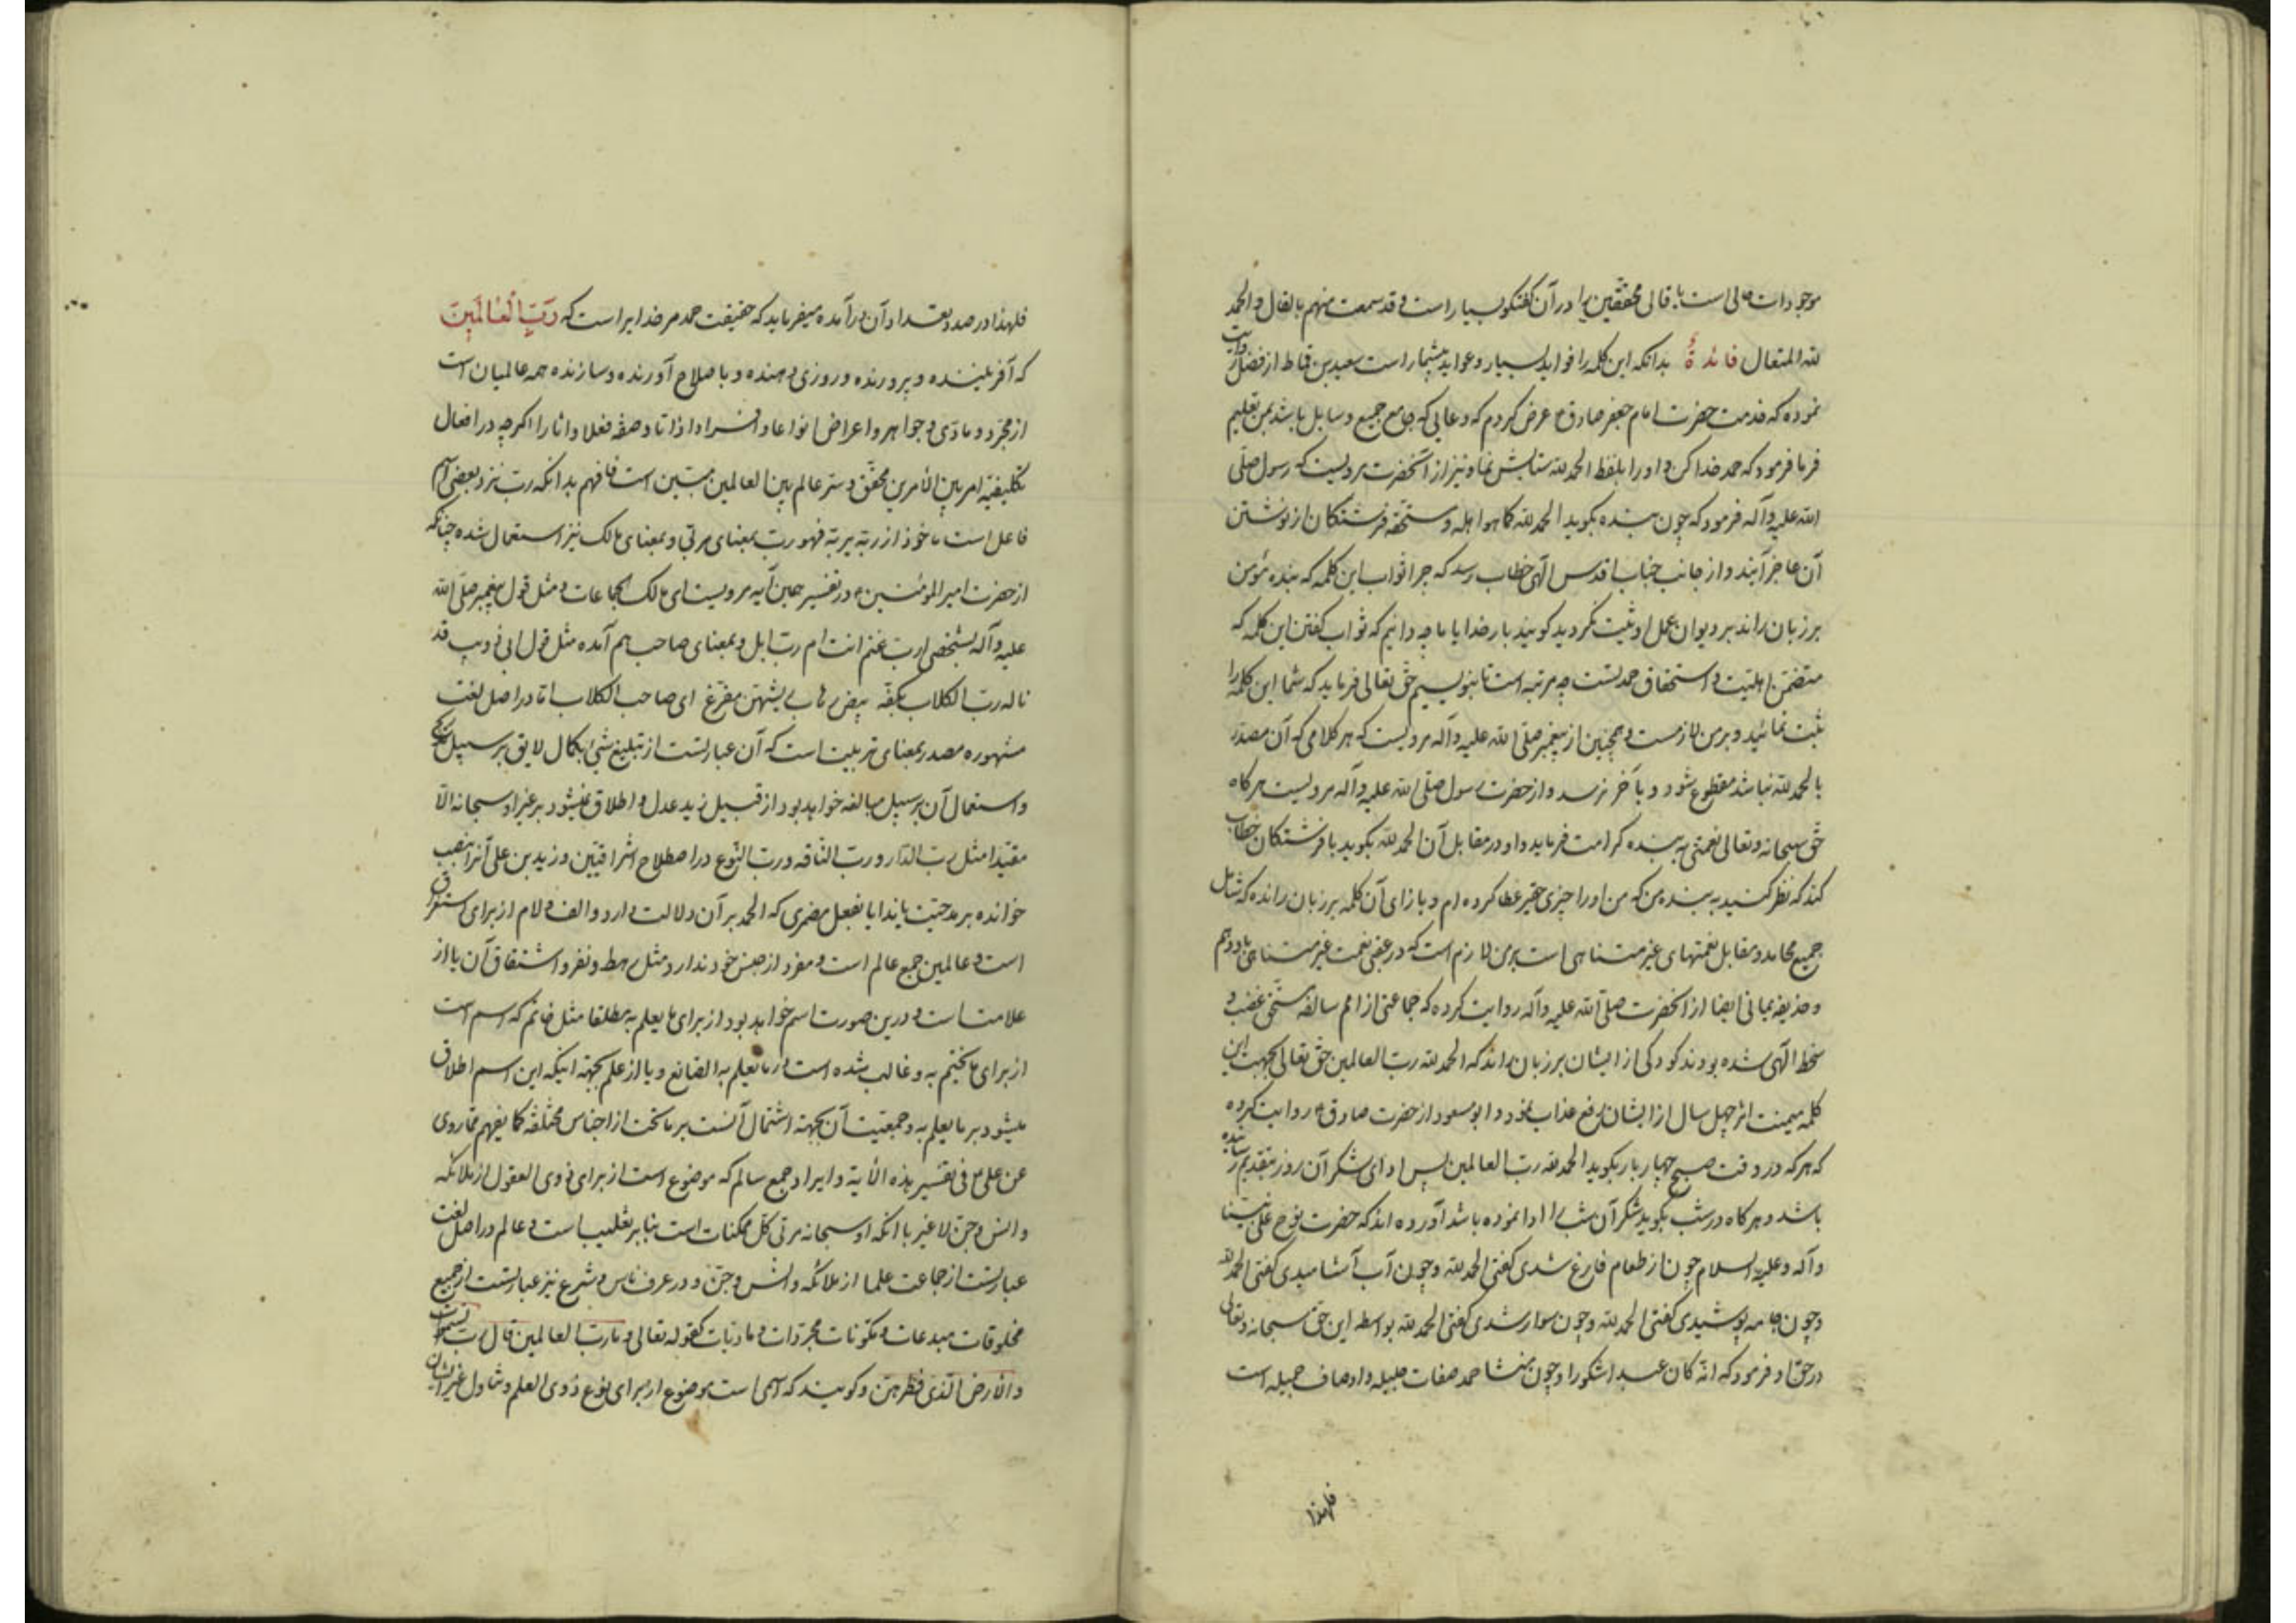 موجودات حالی است یا قالی محققین را در آن گفتگو بسیار است و قد سمعت منهم بالقال و الحمد
لله المتعال فائدة بدانکه این کلمه را فواید بسیار و عواید بیشمار است سعید بن قماط از فضل روایت
نموده که خدمت حضرت امام جعفر صادق عرض کردم که دعایی که جامع جمیع وسایل باشد بمن تعلیم
فرما فرمود که حمد خدا کن و او را بلفظ الحمد لله ستایش نما و نیز از آنحضرت مرویست که رسول صلی
الله علیه و آله فرمود که چون بنده بگوید الحمد لله کما هو اهله و مستحقه فرشتگان از نوشتن
آن عاجز آیند و از جانب جناب اقدس الهی خطاب رسد که چرا ثواب این کلمه که بنده مؤمن
بر زبان راند بر دیوان عمل او ثبت نکردید گویند بار خدایا ما چه دانیم که ثواب گفتن این کلمه که
متضمن اهلیت و استحقاق حمد تست چه مرتبه است تا بنویسیم حق تعالی فرماید که شما این کلمه را
ثبت نمائید و بر من لازمست و همچنین از پیغمبر صلی الله علیه و آله مرویست که هر کلامی که آن مصدر
بالحمد لله نباشد مقطوع شود و بآخر نرسد و از حضرت رسول صلی الله علیه و آله مرویست هرگاه
حق سبحانه و تعالی نعمتی به بنده کرامت فرماید و او در مقابل آن الحمد لله بگوید با فرشتگان خطاب
کند که نظر کنید به بنده من که من او را چیزی حقیر عطا کرده ام و بازای آن کلمه بر زبان رانده که شامل
جمیع محامد و مقابل نعمتهای غیر متناهی است بر من لازم است که در عقبی نعمت غیر متناهی باو دهم
و حذیفه یمانی ایضا از آنحضرت صلی الله علیه و آله روایت کرده که جماعتی از امم سالفه مستحق غضب و
سخط الهی شده بودند کودکی از ایشان بر زبان راند که الحمد لله رب العالمین حق تعالی بجهت این
کلمه میمنت اثر چهل سال از ایشان رفع عذاب نمود و ابو مسعود از حضرت صادق روایت کرده
که هر که در وقت صبح چهار بار بگوید الحمد لله رب العالمین پس ادای شکر آن روز بتقدیم رسانیده
باشد و هرگاه در شب بگوید شکر آن شب را ادا نموده باشد آورده اند که حضرت نوح علی نبینا
و آله و علیه السلام چون از طعام فارغ شدی گفتی الحمد لله و چون آب آشامیدی گفتی الحمد لله
و چون جامه پوشیدی گفتی الحمد لله و چون سوار شدی گفتی الحمد لله بواسطه این حق سبحانه و تعالی
در حق او فرمود که انه کان عبدا شکورا و چون منشا حمد صفات جلیله و اوصاف جمیله است
فلهذا
فلهذا در صدد تعداد آن درآمده میفرماید که حقیقت حمد مر خدایراست که رَبِّ الْعَالَمِینَ
که آفریننده و پرورنده و روزی دهنده و باصلاح آورنده و سازنده همه عالمیان است
از مجرد و مادی و جواهر و اعراض انواعا و افرادا ذاتا و صفة فعلا و اثارا اگرچه در افعال
تکلیفیه امر بین الامرین محقق و ستر عالم بین العالمین مبین است فافهم بدانکه رب نزد بعضی اسم
فاعل است ماخوذ از ربه یربه فهو رب بمعنای مربی و بمعنای مالک نیز استعمال شده چنانکه
از حضرت امیر المؤمنین در تفسیر همین آیه مرویست ای مالک الجماعات و مثل قول پیغمبر صلی الله
علیه و آله بشخصی ارب غنم انت ام رب ابل و بمعنای صاحب هم آمده مثل قول ابی ذویب قد
ناله رب الکلاب بکفه بیض رهاب ریشهن مقزع ای صاحب الکلاب اما در اصل لغت
مشهوره مصدر بمعنای تربیت است که آن عبارتست از تبلیغ شیء بکمال لایق بر سبیل تدریج
و استعمال آن بر سبیل مبالغه خواهد بود از قبیل زید عدل و اطلاق نمیشود بر غیر او سبحانه الا
مقیدا مثل رب الدار و رب الناقه و رب النوع در اصطلاح اشراقیین و زید بن علی آنرا بنصب
خوانده بر مدحیت یا ندا یا بفعل مضمری که الحمد بر آن دلالت دارد و الف و لام از برای استغراق
است و عالمین جمع عالم است و مفرد از جنس خود ندارد مثل رهط و نفر و اشتقاق آن یا از
علامت است و درین صورت اسم خواهد بود از برای ما یعلم به مطلقا مثل خاتم که اسم است
از برای ما یختم به و غالب شده است در ما یعلم به الصانع و یا از علم بجهة اینکه این اسم اطلاق
میشود بر ما یعلم به و جمعیت آن بجهة اشتمال آنست بر ما تحت از اجناس مختلفه کما یفهم مما روی
عن علی فی تفسیر هذه الآیة و ایراد جمع سالم که موضوع است از برای ذوی العقول از ملائکه
و انس و جن لا غیر با آنکه او سبحانه مربی کل ممکنات است بنابر تغلیب است و عالم در اصل لغت
عبارتست از جماعت علما از ملائکه و انس و جن و در عرف ناس و شرع نیز عبارتست از جمیع
مخلوقات مبدعات و مکونات مجردات و مادیات کقوله تعالی و ما رب العالمین قال رب السموات
و الارض الذی فطرهن و گویند که اسمی است موضوع از برای نوع ذوی العلم و تناول غیر ایشان